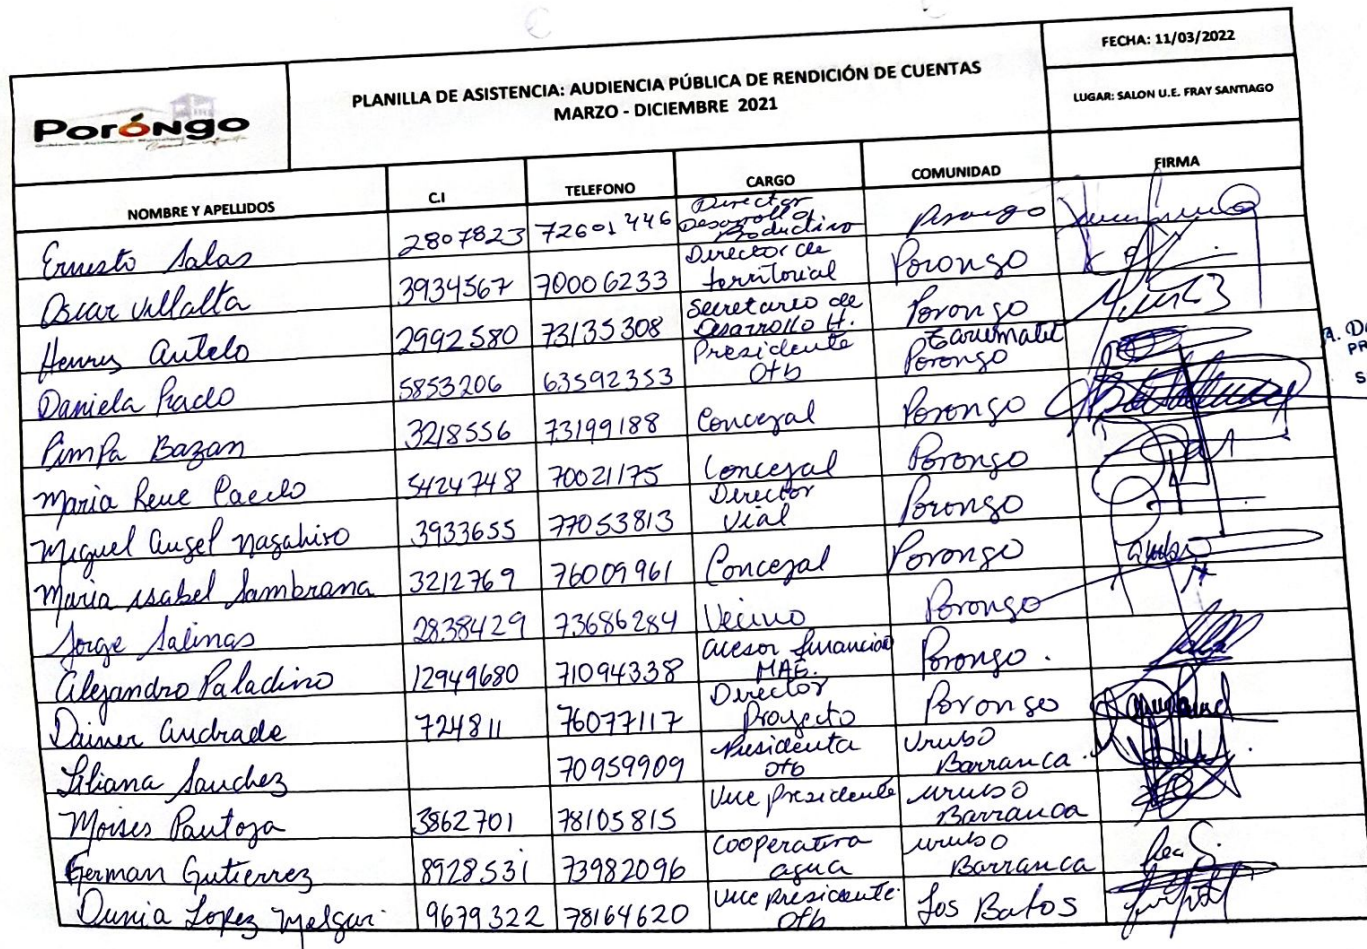 FECHA: 11/03/2022
PLANILLA DE ASISTENCIA: AUDIENCIA PÚBLICA DE RENDICIÓN DE CUENTAS
MARZO - DICIEMBRE 2021
LUGAR: SALON U.E. FRAY SANTIAGO
Poróngo
NOMBRE Y APELLIDOS C.I TELEFONO CARGO COMUNIDAD FIRMA
Ernesto Salas 2807823 72601446 Director Desarrollo Productivo Porongo
Oscar Villalta 3934567 70006233 Director de territorial Porongo
Henrry Antelo 2992580 73135308 Secretareo de Desarrollo H. Porongo
Daniela Prado 5853206 63592353 Presidente Otb Porongo
Pimpa Bazan 3218556 73199188 Concegal Porongo
Maria Rene 5424748 70021175 Concegal Porongo
Miguel Angel Nagahiro 3933655 77053813 Director Vial Porongo
Maria Isabel Sambrana 3212769 76009961 Concegal Porongo
Jorge Salinas 2838429 73686284 Vecino Porongo
Alejandro Paladino 12949680 71094338 acesor financiero MAE. Porongo.
Dainer Andrade 724811 76077117 Director Proyecto Porongo
Liliana Sanchez 70959909 Presidenta otb Urubo Barranca.
Moises Pantoja 3862701 78105815 Vice presidente urubo Barranca
German Gutierrez 8928531 73982096 Cooperativa agua urubo Barranca
Dunia Lopez Melgar 9679322 78164620 Vice presidente Otb Los Batos